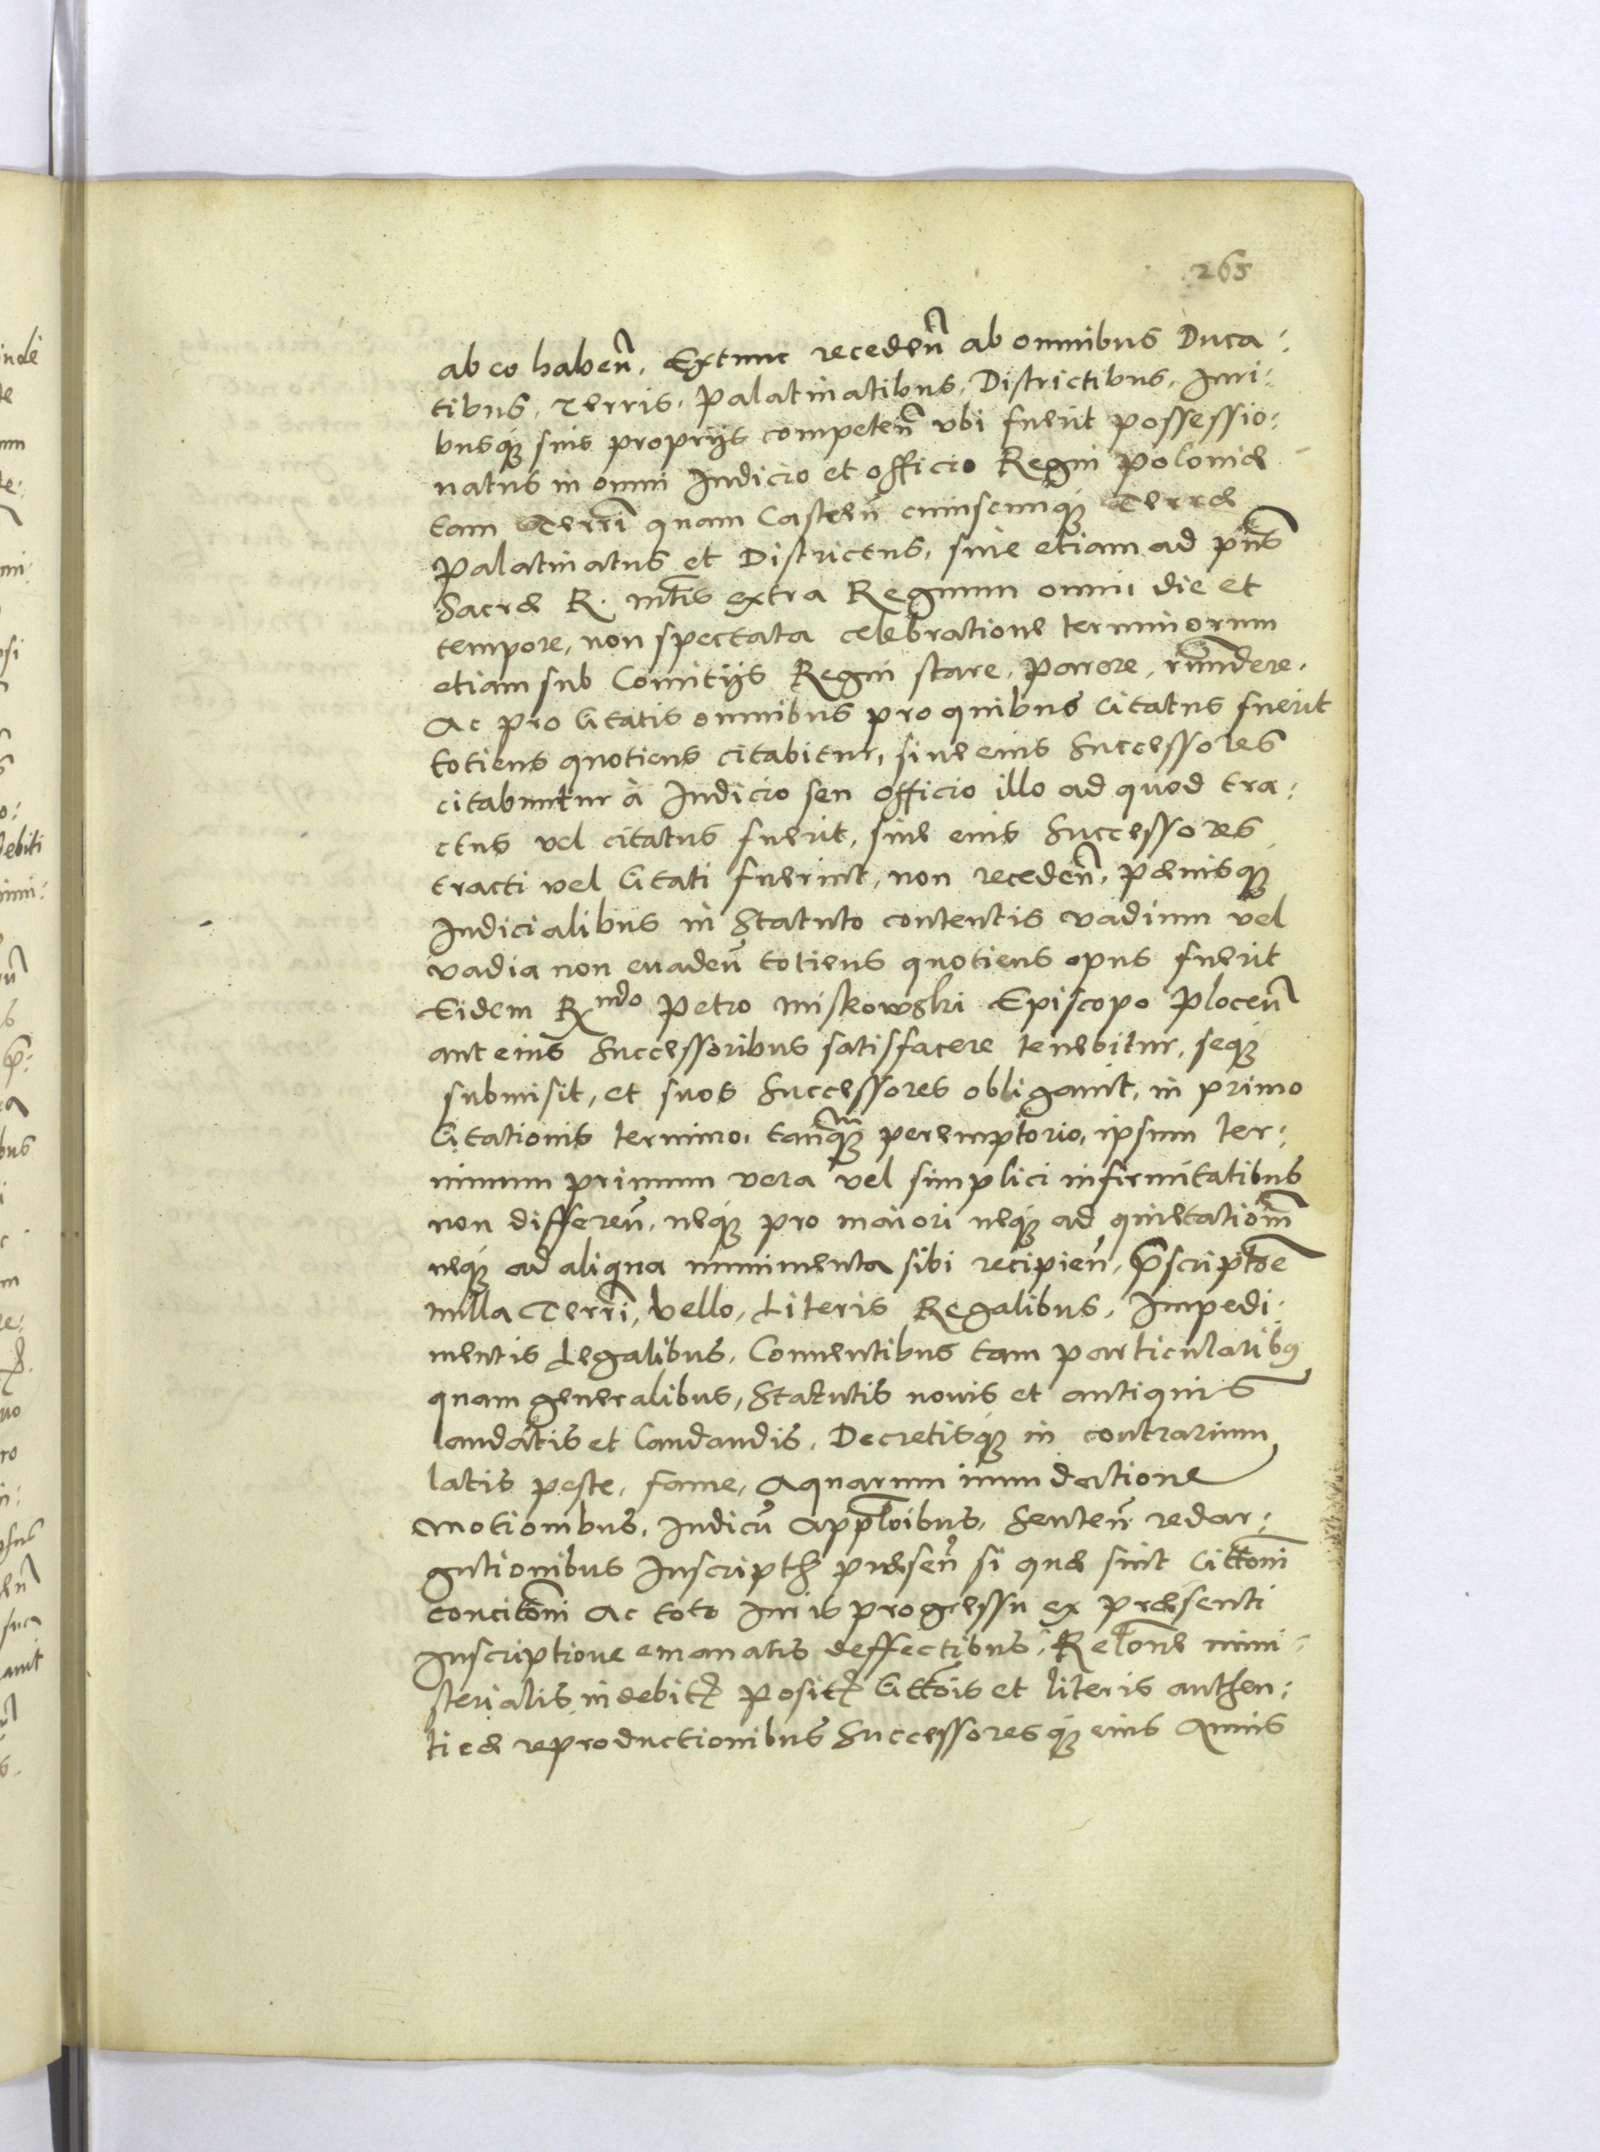 265
ab eo haben̄. Extunc receden̄ ab omnibus Duca:
tibus, Terris, Palatinatibus, Districtibus, Iuri:
busq; suis proprijs competen̄ vbi fuerit possessio:
natus in omni Iudicio et officio Regni Poloniæ
tam Terr̄i quam Castren̄ cuiuscunq; Terræ
Palatinatus et Districtus, siue etiam ad pn̄s
Sacræ R. mt̄is extra Regnum omni die et
tempore, non spectata celebratione terminorum
etiam sub Comitijs Regni stare, parere, rn̄dere.
Ac pro Citatis omnibus pro quibus Citatus fuerit
totiens quotiens citabitur, siue eius Successores
citabuntur à Iudicio seu officio illo ad quod tra:
ctus vel citatus fuerit, siue eius Successores
tracti vel Citati fuerint, non receden̄, Pænisq;
Iudicialibus in Statuto contentis vadium vel
vadia non euaden̄ totiens quotiens opus fuerit
Eidem R̄ndo Petro Miskowski Episcopo Plocen̄
aut eius Successoribus satisfacere tenebitur, seq;
submisit, et suos Successores obligauit, in primo
Citationis termino, tanq̄; peremptorio, ipsum ter:
minum primum vera vel simplici infirmitatibus
non differen̄, neq; pro maiori neq; ad quietatiom̄
neq; ad aliqua munimenta sibi recipien̄, p̄scriptōe
nulla Terr̄i, bello, Literis Regalibus, Impedi:
mentis Legalibus, Conuentibus tam particularibꝰ
quam generalibus, Statutis nouis et antiquis
laudatis et laudandis, Decretisq; in contrarium
latis peste, fame, Aquarum inundatione
Motionibus, Iudicū Appl̄oibus, Senten̄ redar:
gutionibus Inscriptꝭ præsen̄ si quæ sint Citt̄oni
concit̄oni Ac toto Iuris progressu ex præsenti
Inscriptione emanatis deffectibus, Rel̄one mini:
sterialis, indebitꝭ positꝭ Citt̄ois et literis authen:
ticæ reproductionibus Successoresq; eius Quiuis